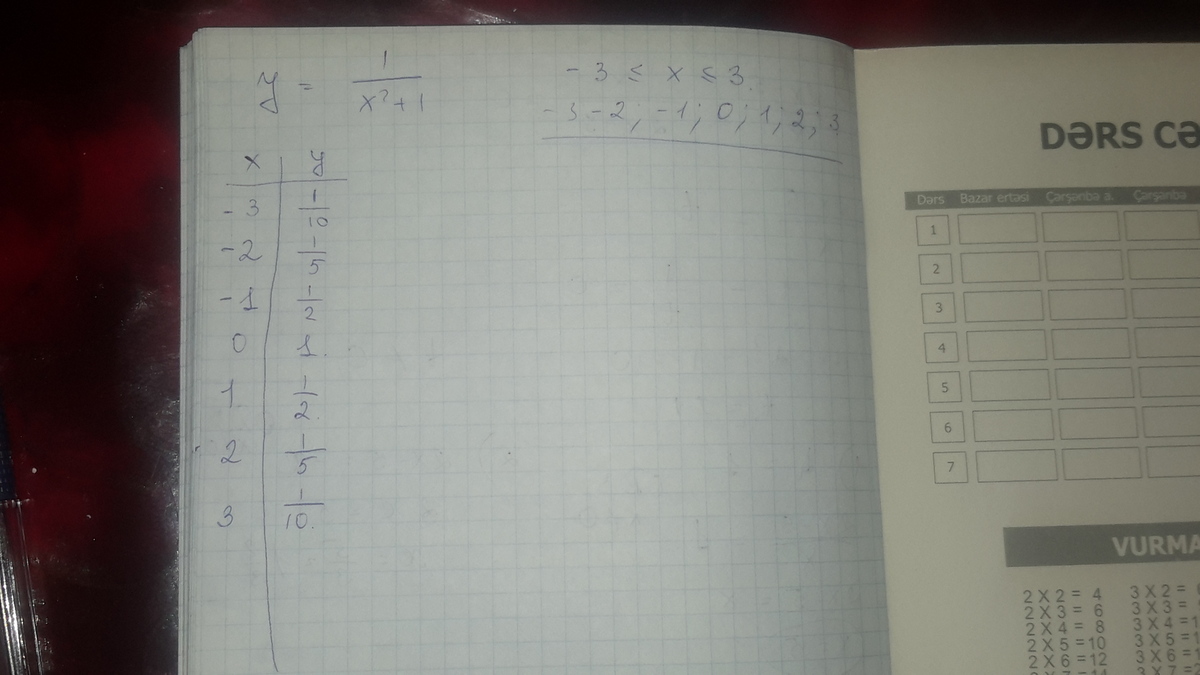 y = 1/(x²+1)
-3 ≤ x ≤ 3.
-3 -2; -1; 0; 1; 2; 3
x | y
-3 | 1/10
-2 | 1/5
-1 | 1/2
0 | 1.
1 | 1/2.
2 | 1/5
3 | 1/10.
DƏRS CƏ
Dərs Bazar ertəsi Çərşənbə a. Çərşənbə
1
2
3
4
5
6
7
VURMA
2 X 2 = 4 3 X 2 =
2 X 3 = 6 3 X 3 =
2 X 4 = 8 3 X 4 =1
2 X 5 =10 3 X 5 =1
2 X 6 =12 3 X 6 =1